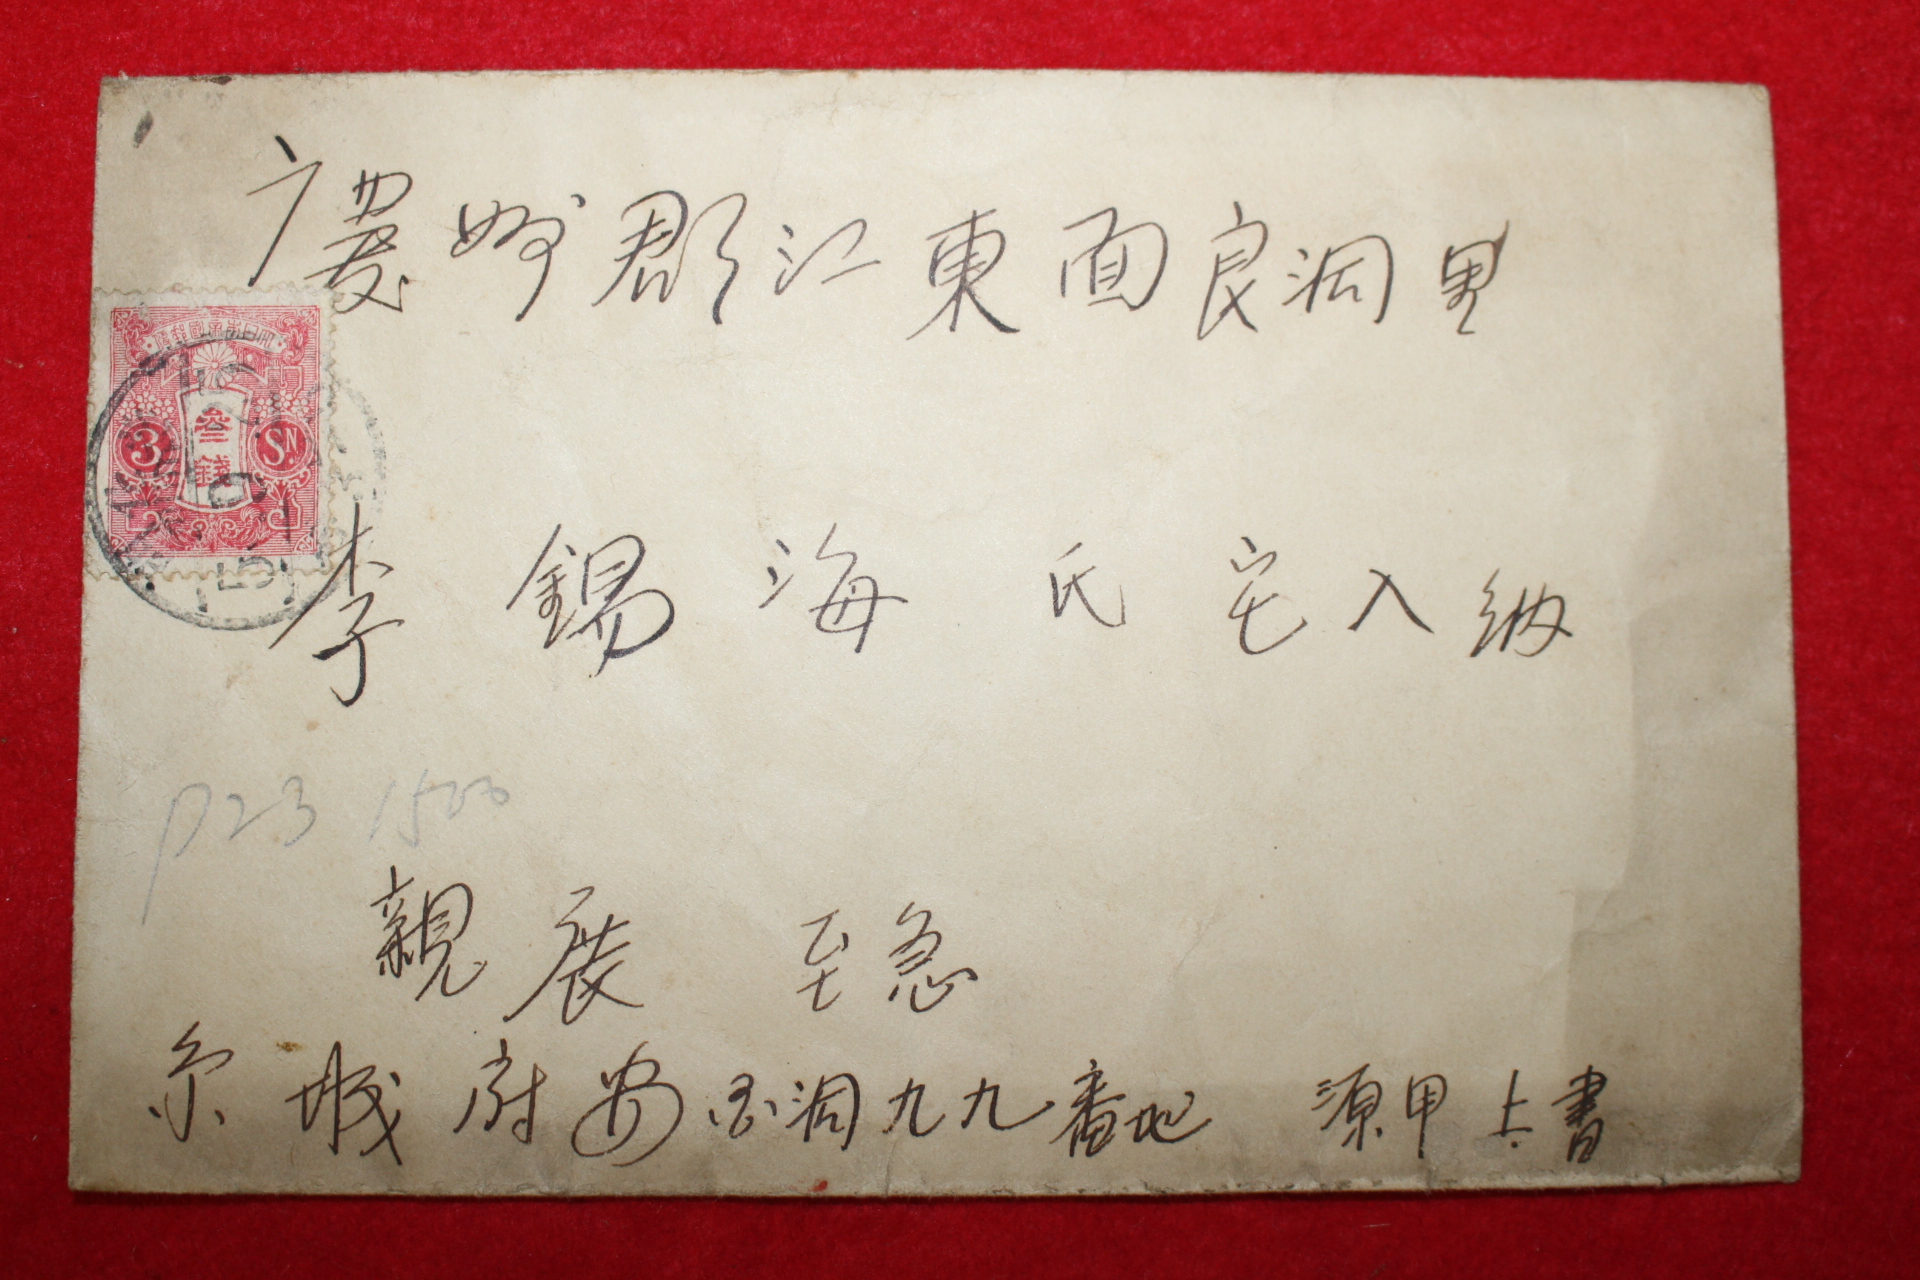 慶州郡江東面良洞里
大日本帝國郵便
3 參錢 SN
李錫海氏宅入納
P23 1500
親展 至急
京城府安國洞九九番地 源甲上書